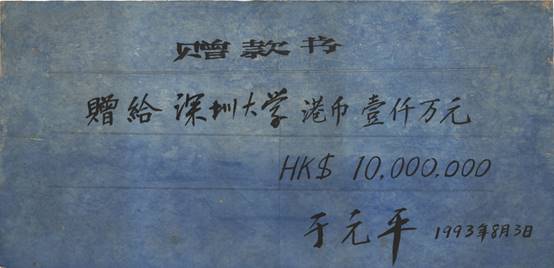 赠款书
贈給 深圳大学 港币 壹仟万元
HK$ 10,000,000
于元平 1993年8月3日